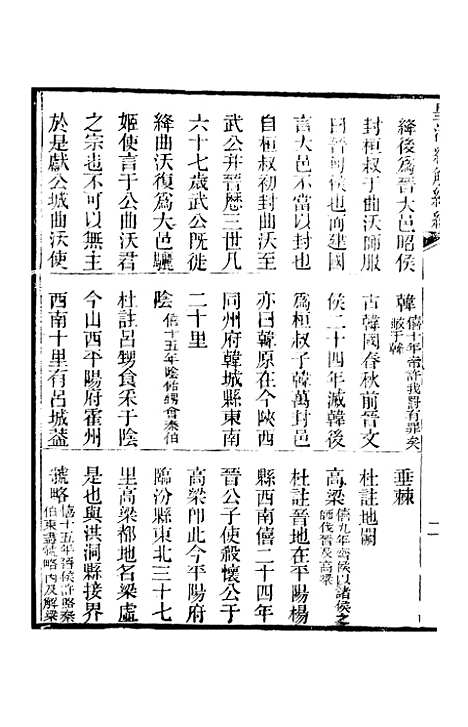 絳後爲晉大邑昭侯
封桓叔于曲沃師服
曰晉甸侯也而建國
言大邑不當以封也
自桓叔初封曲沃至
武公并晉歷三世凡
六十七歲武公旣徙
絳曲沃復爲大邑驪
姬使言于公曲沃君
之宗也不可以無主
於是獻公城曲沃使
韓 僖十年帝許我罰有罪矣
敝于韓
古韓國春秋前晉文
侯二十四年滅韓後
爲桓叔子韓萬封邑
亦曰韓原在今陝西
同州府韓城縣東南
二十里
陰 僖十五年陰飴甥會秦伯
杜註呂甥食采于陰
今山西平陽府霍州
西南十里有呂城蓋
垂棘
杜註地闕
高梁 僖九年齊侯以諸侯之
師伐晉及高梁
杜註晉地在平陽楊
縣西南僖二十四年
晉公子使殺懷公于
高梁卽此今平陽府
臨汾縣東北三十七
里高梁都地名梁虛
是也與洪洞縣接界
虢略 僖十五年晉侯許賂秦
伯東盡虢略內及解梁